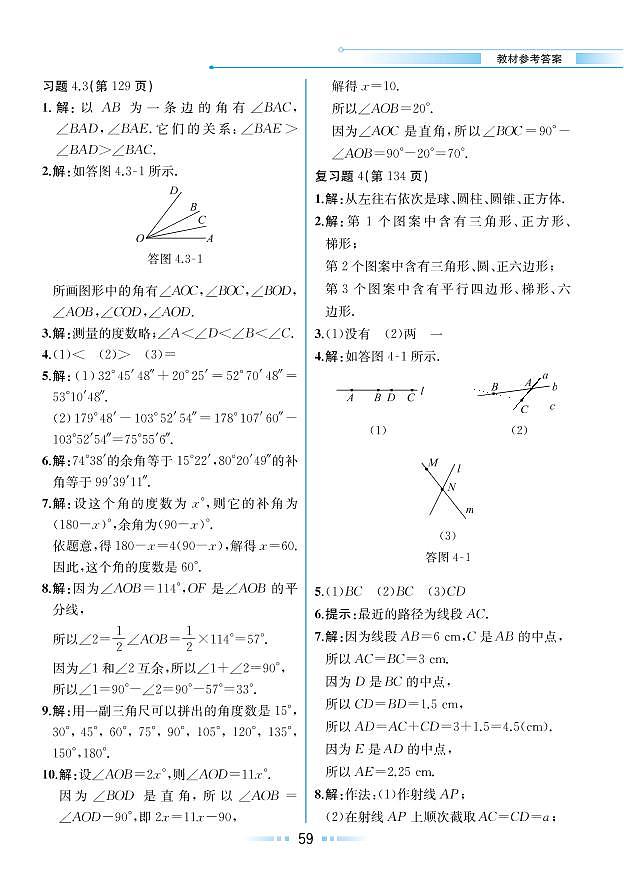 教材参考答案
习题 4.3(第 129 页)
1. 解:以 AB 为一条边的角有∠BAC,
∠BAD,∠BAE.它们的关系:∠BAE>
∠BAD>∠BAC.
2.解:如答图 4.3-1 所示.
D
B
C
O
A
答图 4.3-1
所画图形中的角有∠AOC,∠BOC,∠BOD,
∠AOB,∠COD,∠AOD.
3.解:测量的度数略;∠A<∠D<∠B<∠C.
4.(1)< (2)> (3)=
5.解:(1)32°45′48″+20°25′=52°70′48″=
53°10′48″.
(2)179°48′-103°52′54″=178°107′60″-
103°52′54″=75°55′6″.
6.解:74°38′的余角等于 15°22′,80°20′49″的补
角等于 99°39′11″.
7.解:设这个角的度数为 x°,则它的补角为
(180-x)°,余角为(90-x)°.
依题意,得 180-x=4(90-x),解得 x=60.
因此,这个角的度数是 60°.
8.解:因为∠AOB=114°,OF 是∠AOB 的平
分线,
所以∠2=1/2∠AOB=1/2×114°=57°.
因为∠1 和∠2 互余,所以∠1+∠2=90°,
所以∠1=90°-∠2=90°-57°=33°.
9.解:用一副三角尺可以拼出的角度数是 15°,
30°,45°,60°,75°,90°,105°,120°,135°,
150°,180°.
10.解:设∠AOB=2x°,则∠AOD=11x°.
因为∠BOD 是直角,所以∠AOB=
∠AOD-90°,即 2x=11x-90,
解得 x=10.
所以∠AOB=20°.
因为∠AOC 是直角,所以∠BOC=90°-
∠AOB=90°-20°=70°.
复习题 4(第 134 页)
1.解:从左往右依次是球、圆柱、圆锥、正方体.
2.解:第 1 个图案中含有三角形、正方形、
梯形;
第 2 个图案中含有三角形、圆、正六边形;
第 3 个图案中含有平行四边形、梯形、六
边形.
3.(1)没有 (2)两 一
4.解:如答图 4-1 所示.
A B D C l
(1)
a
B A b
C c
(2)
M l
N
m
(3)
答图 4-1
5.(1)BC (2)BC (3)CD
6.提示:最近的路径为线段 AC.
7.解:因为线段 AB=6 cm,C 是 AB 的中点,
所以 AC=BC=3 cm.
因为 D 是 BC 的中点,
所以 CD=BD=1.5 cm,
所以 AD=AC+CD=3+1.5=4.5(cm).
因为 E 是 AD 的中点,
所以 AE=2.25 cm.
8.解:作法:(1)作射线 AP;
(2)在射线 AP 上顺次截取 AC=CD=a;
59